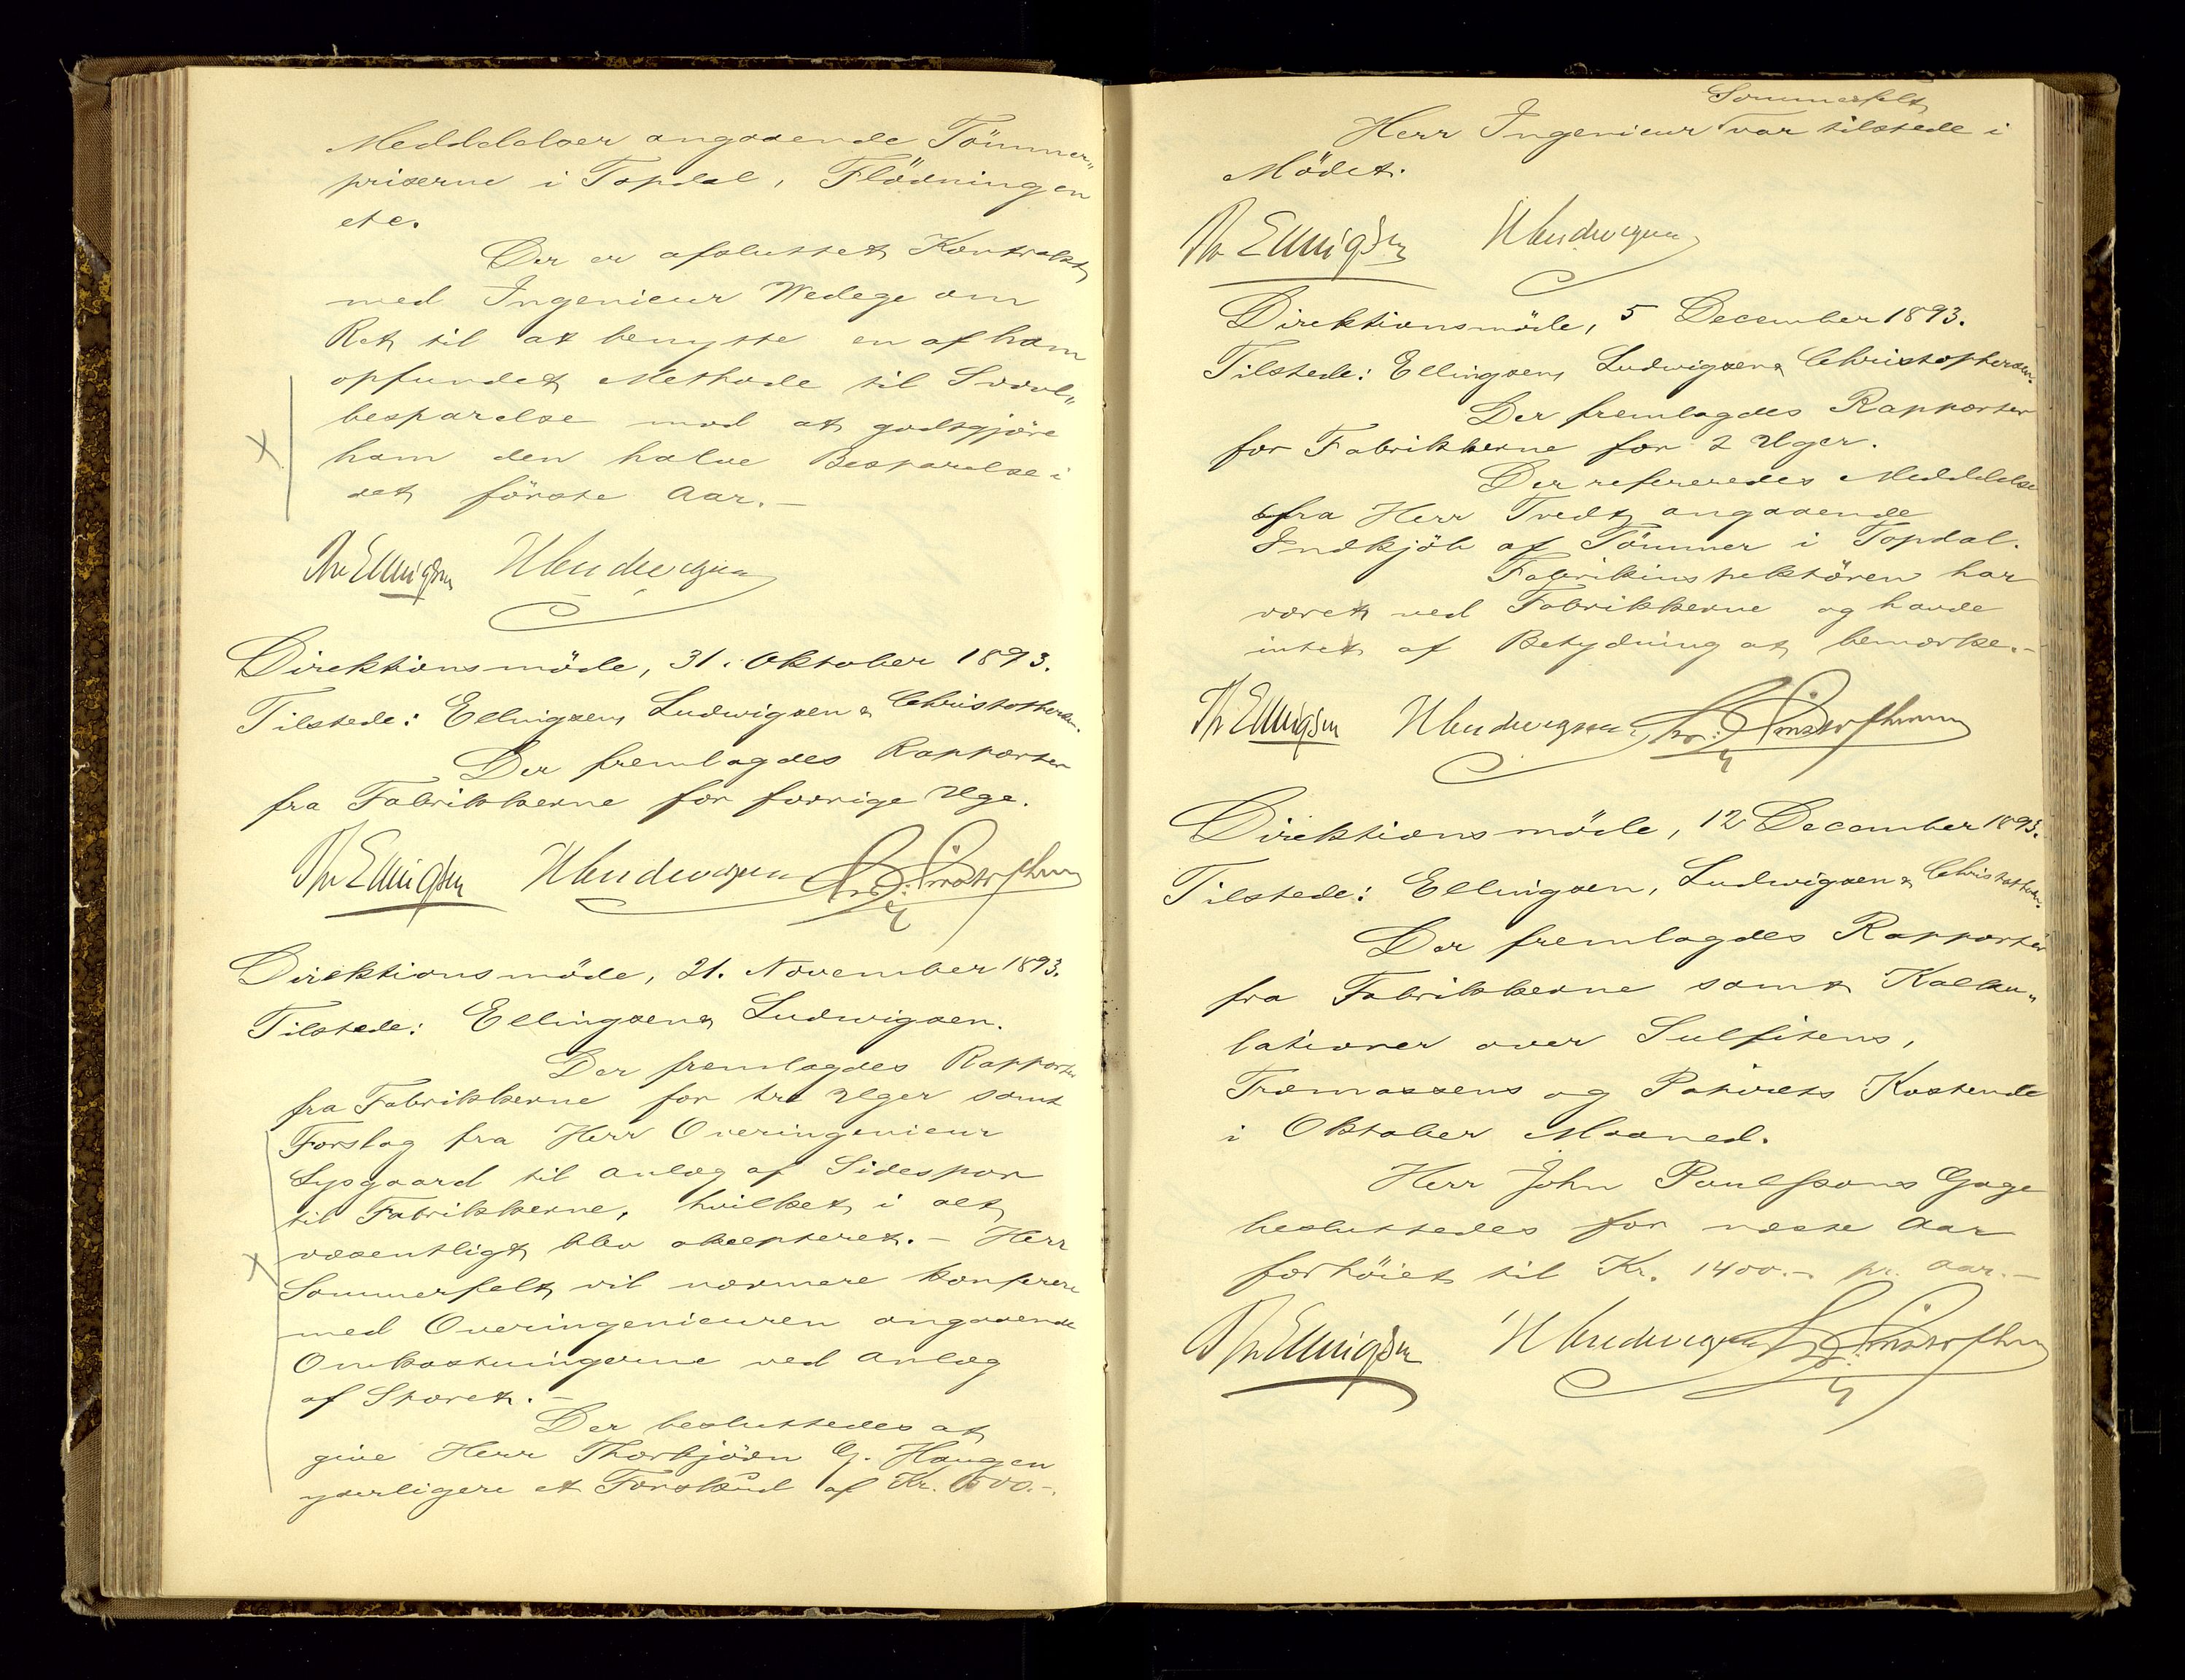 Meddelelser angaaende Tömmer„
priserne i Topdal, Flödningen
etc.
Der er afsluttet Kontrakt
med Ingenieur Wedege om
Ret til at benytte en af ham
opfundet Methode til Svovl„
besparelse mod at godtgjöre
ham den halve Besparelse i
det förste Aar.—
Th Ellingsen HLudwigsen
Direktionsmöde, 31. Oktober 1893.
Tilstede: Ellingsen, Ludwigsen & Christophersen.
Der fremlagdes Rapporter
fra Fabrikkerne for forrige Uge.
Th Ellingsen HLudwigsen Chr. Christophersen
Direktionsmöde, 21. November 1893.
Tilstede: Ellingsen & Ludwigsen.
Der fremlagdes Rapporter
fra Fabrikkerne for tre Uger samt
Forslag fra Herr Overingenieur
Lysgaard til Anlæg af Sidespor
til Fabrikkerne, hvilket i alt
væsentligt blev akcepteret.— Herr
Sommerfelt vil nærmere konferere
med Overingenieuren angaaende
Omkostningerne ved Anlæg
af Sporet.—
Der besluttedes at
give Herr Thorbjörn G. Haugen
yderligere et Forskud af Kr. 500.—.
Sommerfelt
Herr Ingenieur var tilstede i
Mödet.
Th Ellingsen HLudwigsen
Direktionsmöde, 5 December 1893.
Tilstede: Ellingsen, Ludwigsen & Christophersen.
Der fremlagdes Rapporter
for Fabrikkerne for 2 Uger.
Der refereredes Meddelelse
fra Herr Tvedt angaaende
Indkjöb af Tömmer i Topdal.
Fabrikinspektören har
været ved Fabrikkerne og havde
intet af Betydning at bemærke.—
Th Ellingsen HLudwigsen Chr. Christophersen
Direktionsmöde, 12 December 1893.
Tilstede: Ellingsen, Ludwigsen & Christophersen.
Der fremlagdes Rapporter
fra Fabrikkerne samt Kalku„
lationer over Sulfitens,
Træmassens og Papirets Kostende
i Oktober Maaned.
Herr John Paulssons Gage
besluttedes for næste Aar
forhöiet til Kr. 1400.— pr. Aar.—
Th Ellingsen HLudwigsen Chr. Christophersen